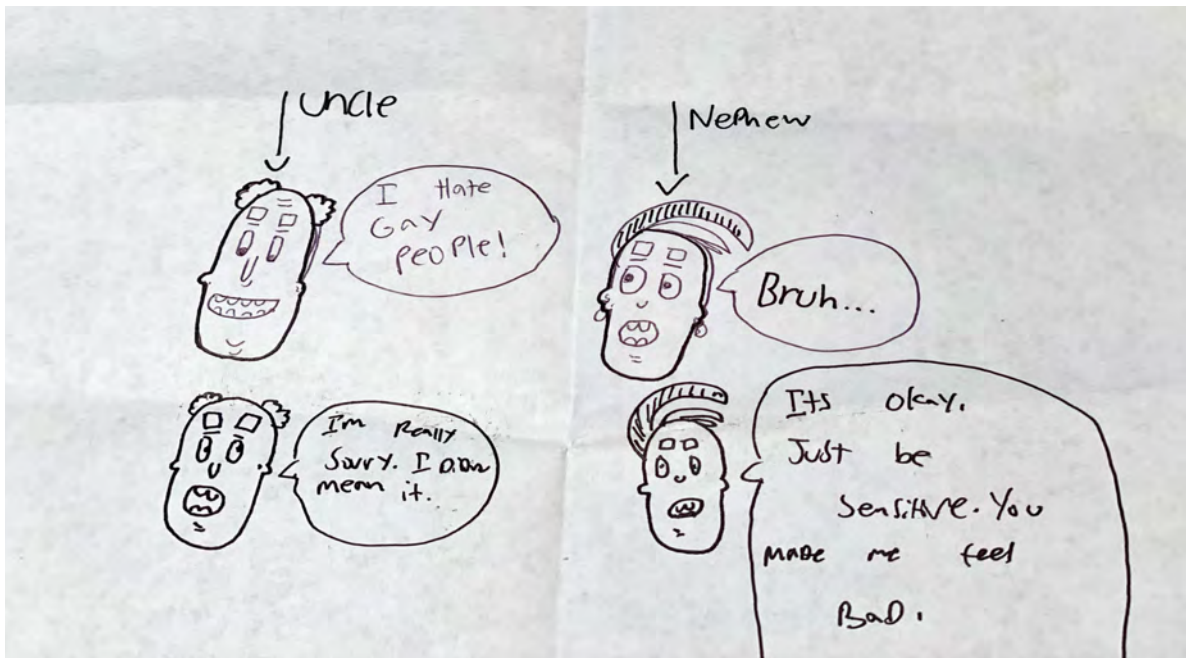 Uncle
I Hate
Gay
people!
Nephew
Bruh...
I'm Really
Sorry. I DiDn
mean it.
Its okay.
Just be
Sensitive. You
maDe me feel
BaD.